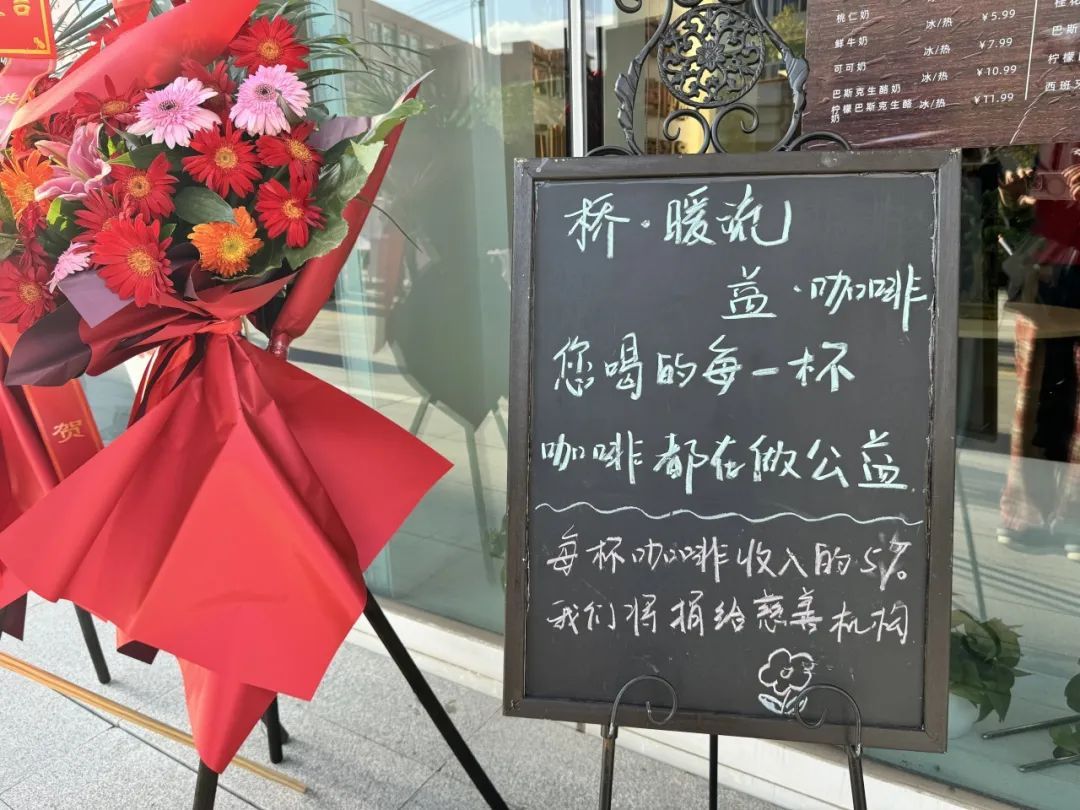 桃仁奶 冰/热 ￥5.99
鲜牛奶 冰/热 ￥7.99
可可奶 冰/热 ￥10.99
巴斯克生酪奶 冰/热 ￥11.99
柠檬巴斯克生酪奶 冰/热
桥·暖流
益·咖啡
您喝的每一杯
咖啡都在做公益
每杯咖啡收入的5%
我们将捐给慈善机构
贺